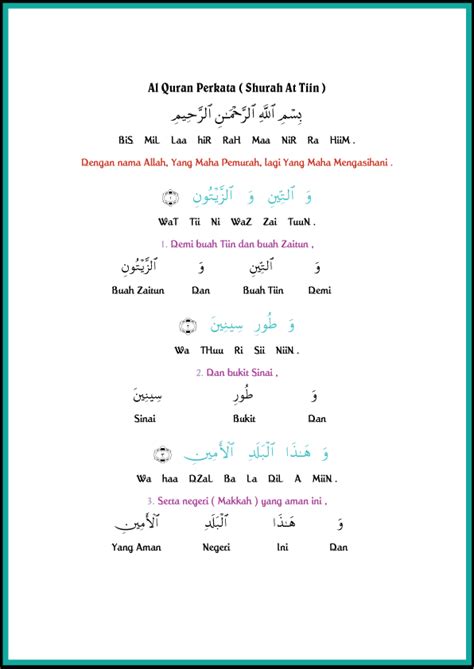 Al Quran Perkata ( Shurah At Tiin )
بِسْمِ ٱللَّهِ ٱلرَّحْمَـٰنِ ٱلرَّحِيمِ
BiS MiL Laa hiR RaH Maa NiR Ra HiiM .
Dengan nama Allah, Yang Maha Pemurah, lagi Yang Maha Mengasihani .
وَ ٱلتِّينِ وَ ٱلزَّيْتُونِ ١
WaT Tii Ni WaZ Zai TuuN .
1. Demi buah Tiin dan buah Zaitun ,
وَ ٱلتِّينِ وَ ٱلزَّيْتُونِ
Buah Zaitun Dan Buah Tiin Demi
وَ طُورِ سِينِينَ ٢
Wa THuu Ri Sii NiiN .
2. Dan bukit Sinai ,
وَ طُورِ سِينِينَ
Sinai Bukit Dan
وَ هَـٰذَا ٱلْبَلَدِ ٱلْأَمِينِ ٣
Wa haa DZaL Ba La DiL A MiiN .
3. Serta negeri ( Makkah ) yang aman ini ,
وَ هَـٰذَا ٱلْبَلَدِ ٱلْأَمِينِ
Yang Aman Negeri Ini Dan